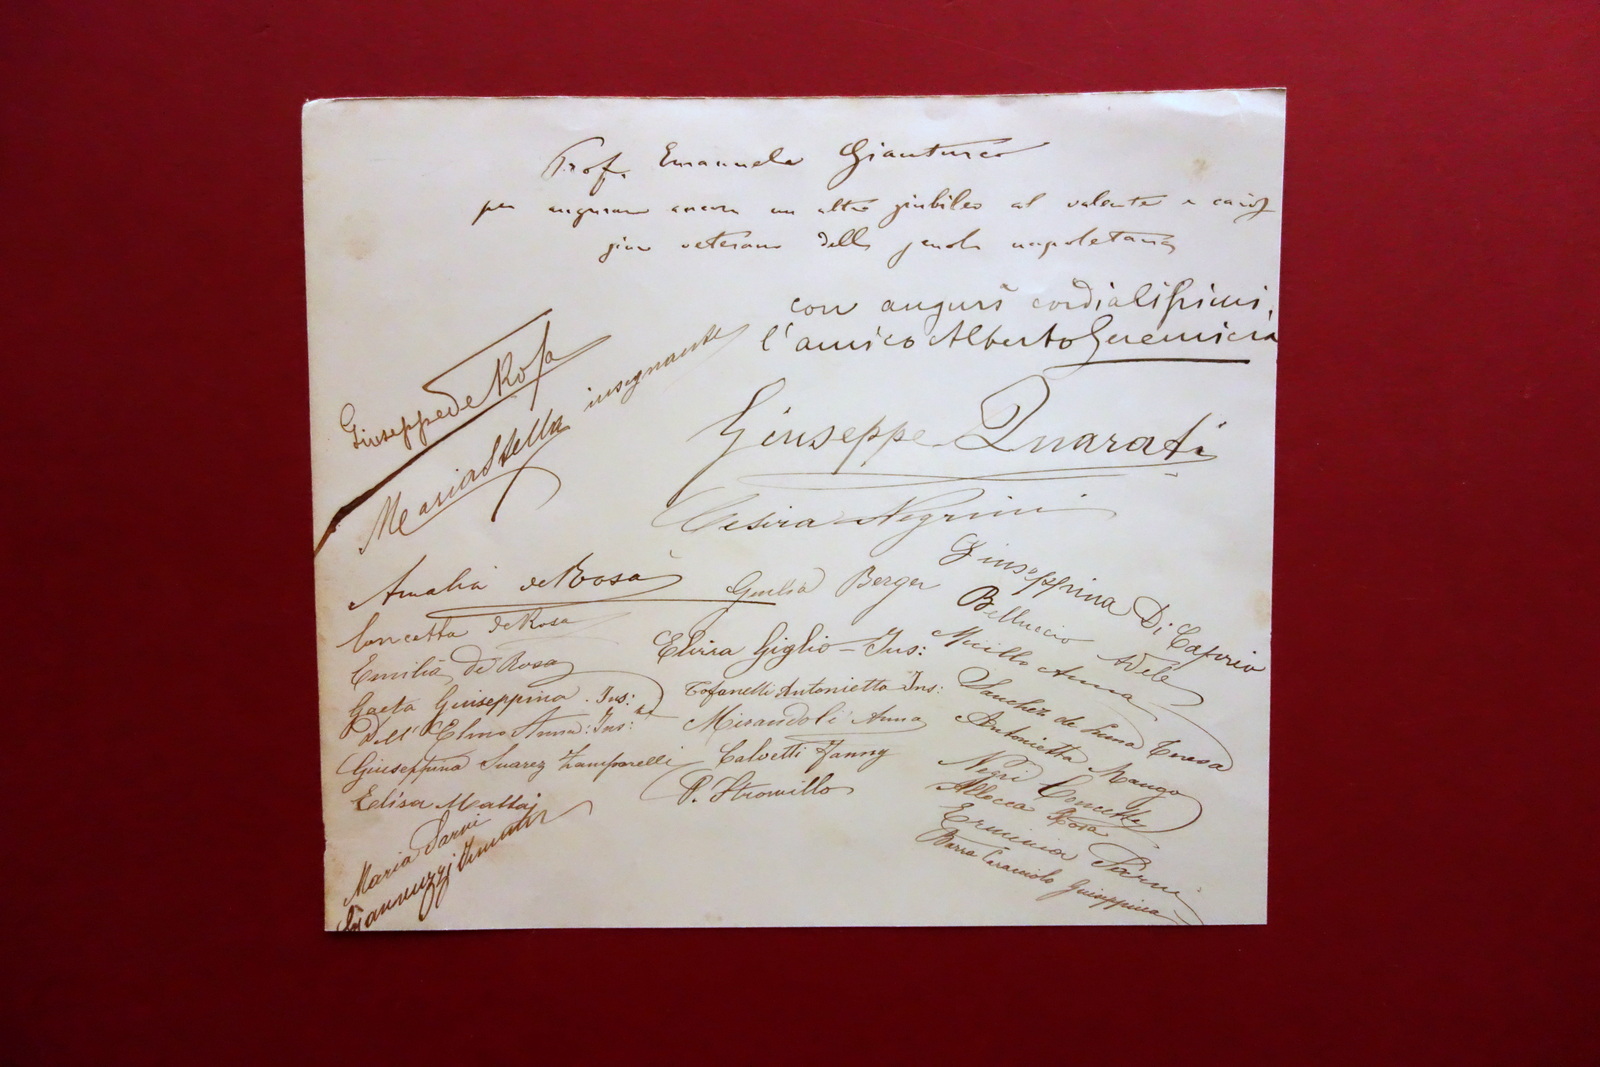 Prof. Emanuele Gianturco
per augurare ancora un altro giubileo al valente e
veterano della scuola napoletana
con augurî cordialissimi,
l'amico Alberto
Giuseppe de Rosa
Maria Stella insegnante
Giuseppe Quarati
Cesira Negrini
Amalia de Rosa
Concetta de Rosa
Emilia de Rosa
Gaeta Giuseppina Ins:
Dell'Elmo Anna: Ins:
Giuseppina Suarez Zamparelli
Edisa Mattei
Maria Sarni
Giannuzzi
Giulia Berger
Elvira Giglio - Ins:
Tofanelli Antonietta Ins:
Mirandoli Anna
Calvetti Fanny
P. Stromillo
Giuseppina Di Caprio
Belluccio Adele
Micillo Anna
Sanchez de Luna Teresa
Antonietta Mango
Negri Concetta
Allocca Rosa
Erminia Sarni
Barra Caracciolo Giuseppina